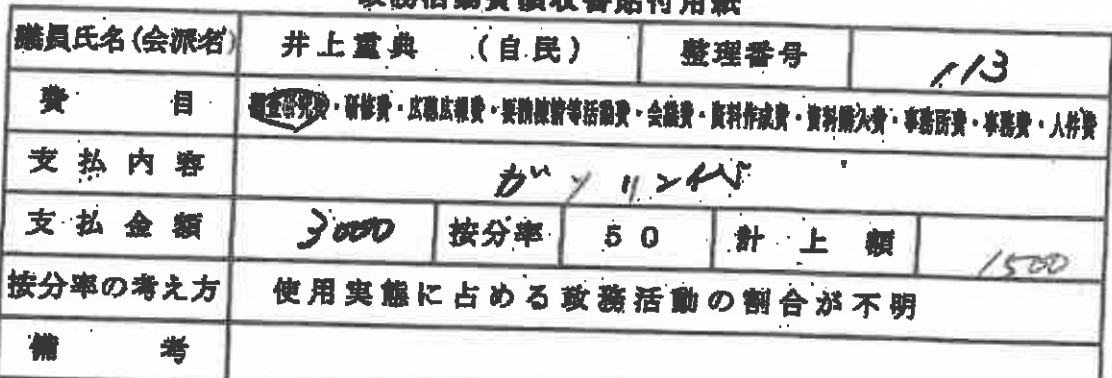 政務活動費領収書貼付用紙
議員氏名(会派名) 井上重典 (自民) 整理番号 113
費目 調査研究費・研修費・広聴広報費・要請陳情等活動費・会議費・資料作成費・資料購入費・事務所費・事務費・人件費
支払内容 ガソリン代
支払金額 3000 按分率 50 計上額 1500
按分率の考え方 使用実態に占める政務活動の割合が不明
備考